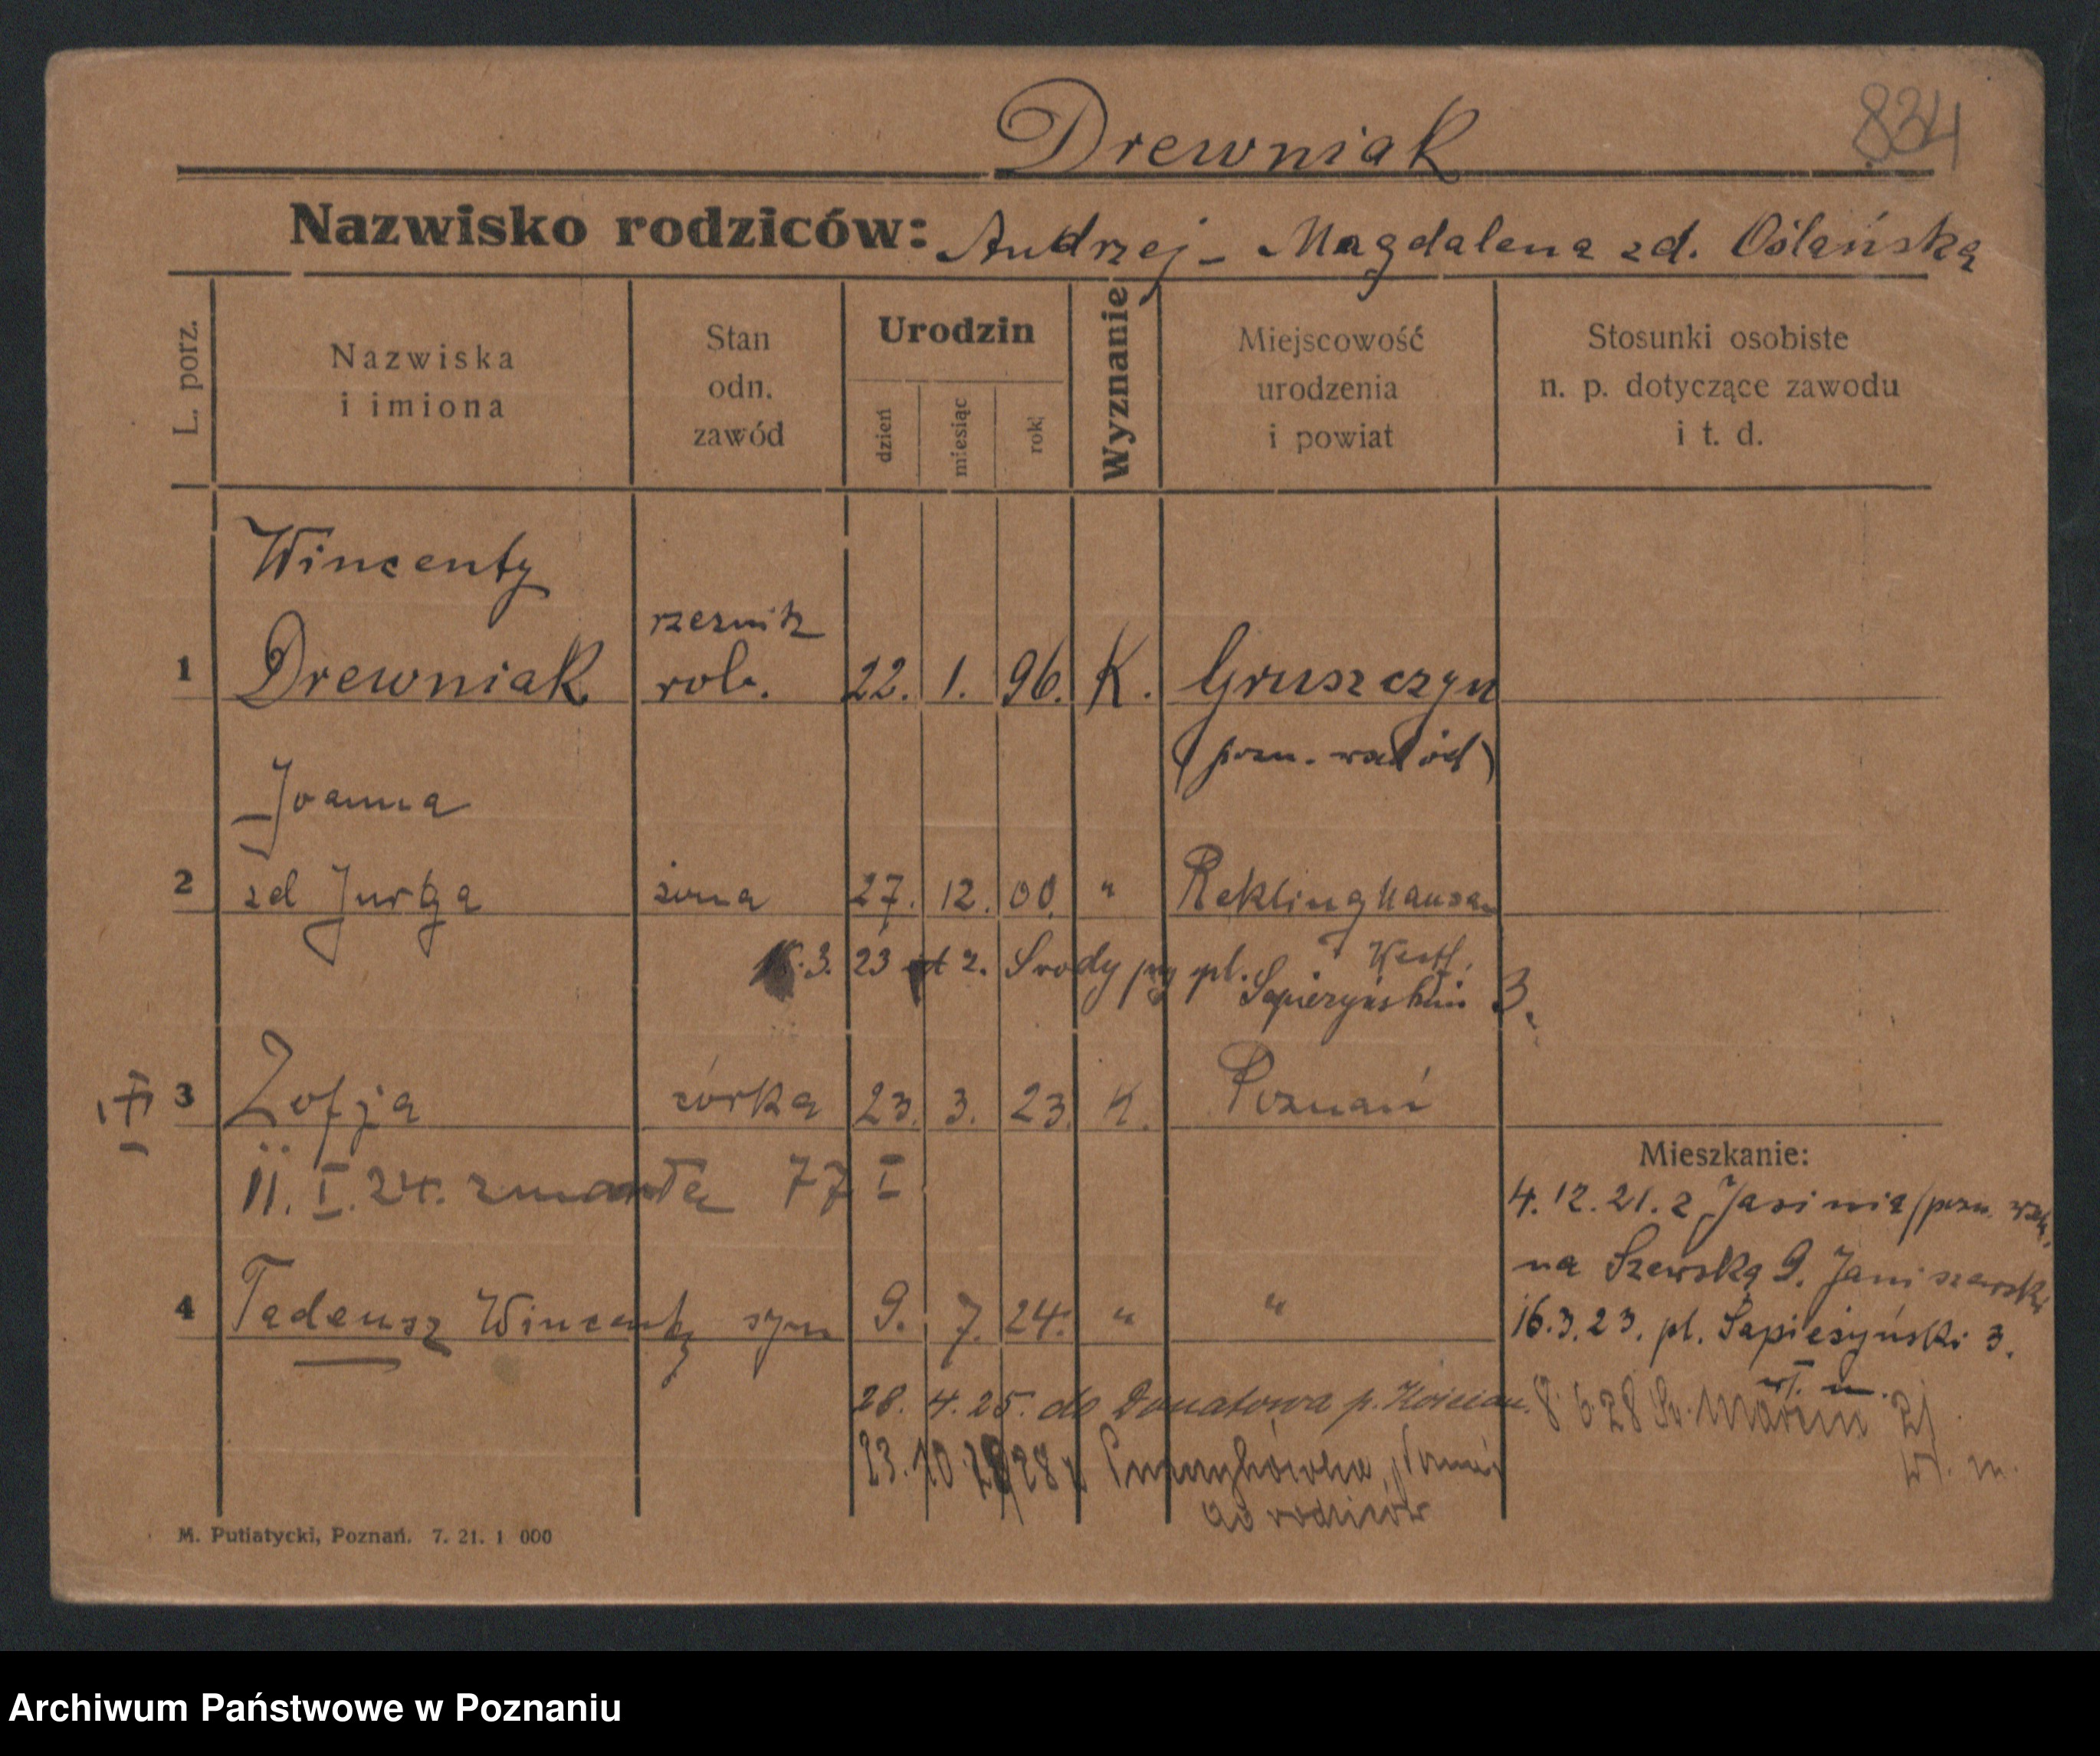 Drewniak
834
Nazwisko rodziców: Andrzej - Magdalena zd. Oślańska
L. porz.
Nazwiska i imiona
Stan odn. zawód
Urodzin
dzień
miesiąc
rok
Wyznanie
Miejscowość urodzenia i powiat
Stosunki osobiste n. p. dotyczące zawodu i t. d.
Wincenty
rzeźnik
1 Drewniak rob. 22. 1. 96. K. Gruszczyn
(pozn. wschód)
Joanna
2 zd Jurga żona 27. 12. 00. " Reklinghausen
Westf.
3. 23 z. Środy pl. Sapieżyński 3.
3 Zofja córka 23. 3. 23. K. Poznań
11. I. 24. zmarła 77 I
Mieszkanie:
4. 12. 21. z Jasinia (pozn. wsch.
na Szewską 9. Janiszewski
4 Tadeusz Wincenty syn 9. 7. 24. " "
16.3.23. pl. Sapieżyński 3.
wł. m.
28. 4. 25. do Donatowa p. Kościan.
8. 6. 28 Św. Marcin
wł. m.
23. 10. 28
do rodziców
M. Putiatycki, Poznań. 7. 21. 1 000
Archiwum Państwowe w Poznaniu